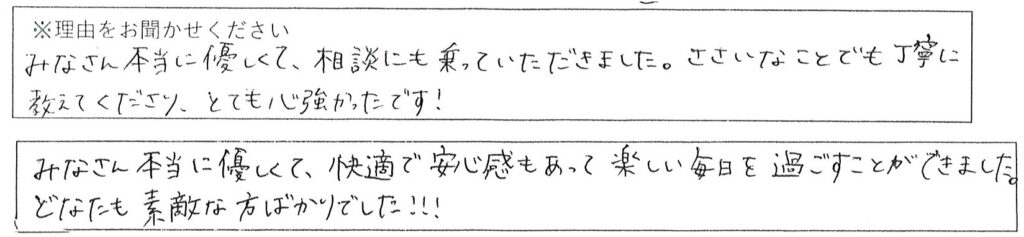 ※理由をお聞かせください
みなさん本当に優しくて、相談にも乗っていただきました。ささいなことでも丁寧に
教えてくださり、とても心強かったです!
みなさん本当に優しくて、快適で安心感もあって楽しい毎日を過ごすことができました。
どなたも素敵な方ばかりでした!!!